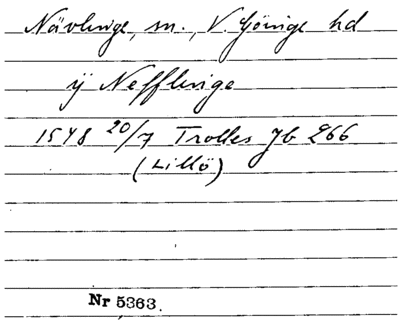 Nävlinge, sn., V. Göinge hd
ÿ Nefflinge
1548 20/7 Trolles Jb 266
(Lillö)
Nr 5363.